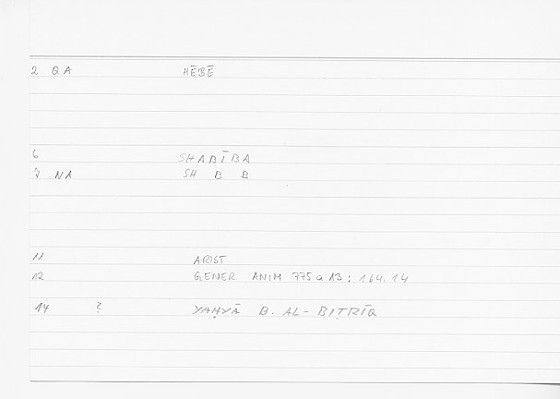 2 QA HĒBĒ
6 SHABĪBA
7 NA SH B B
11 ARIST
12 GENER ANIM 775a13 : 164.14
14 ? YAḤYĀ B. AL-BIṬRĪQ